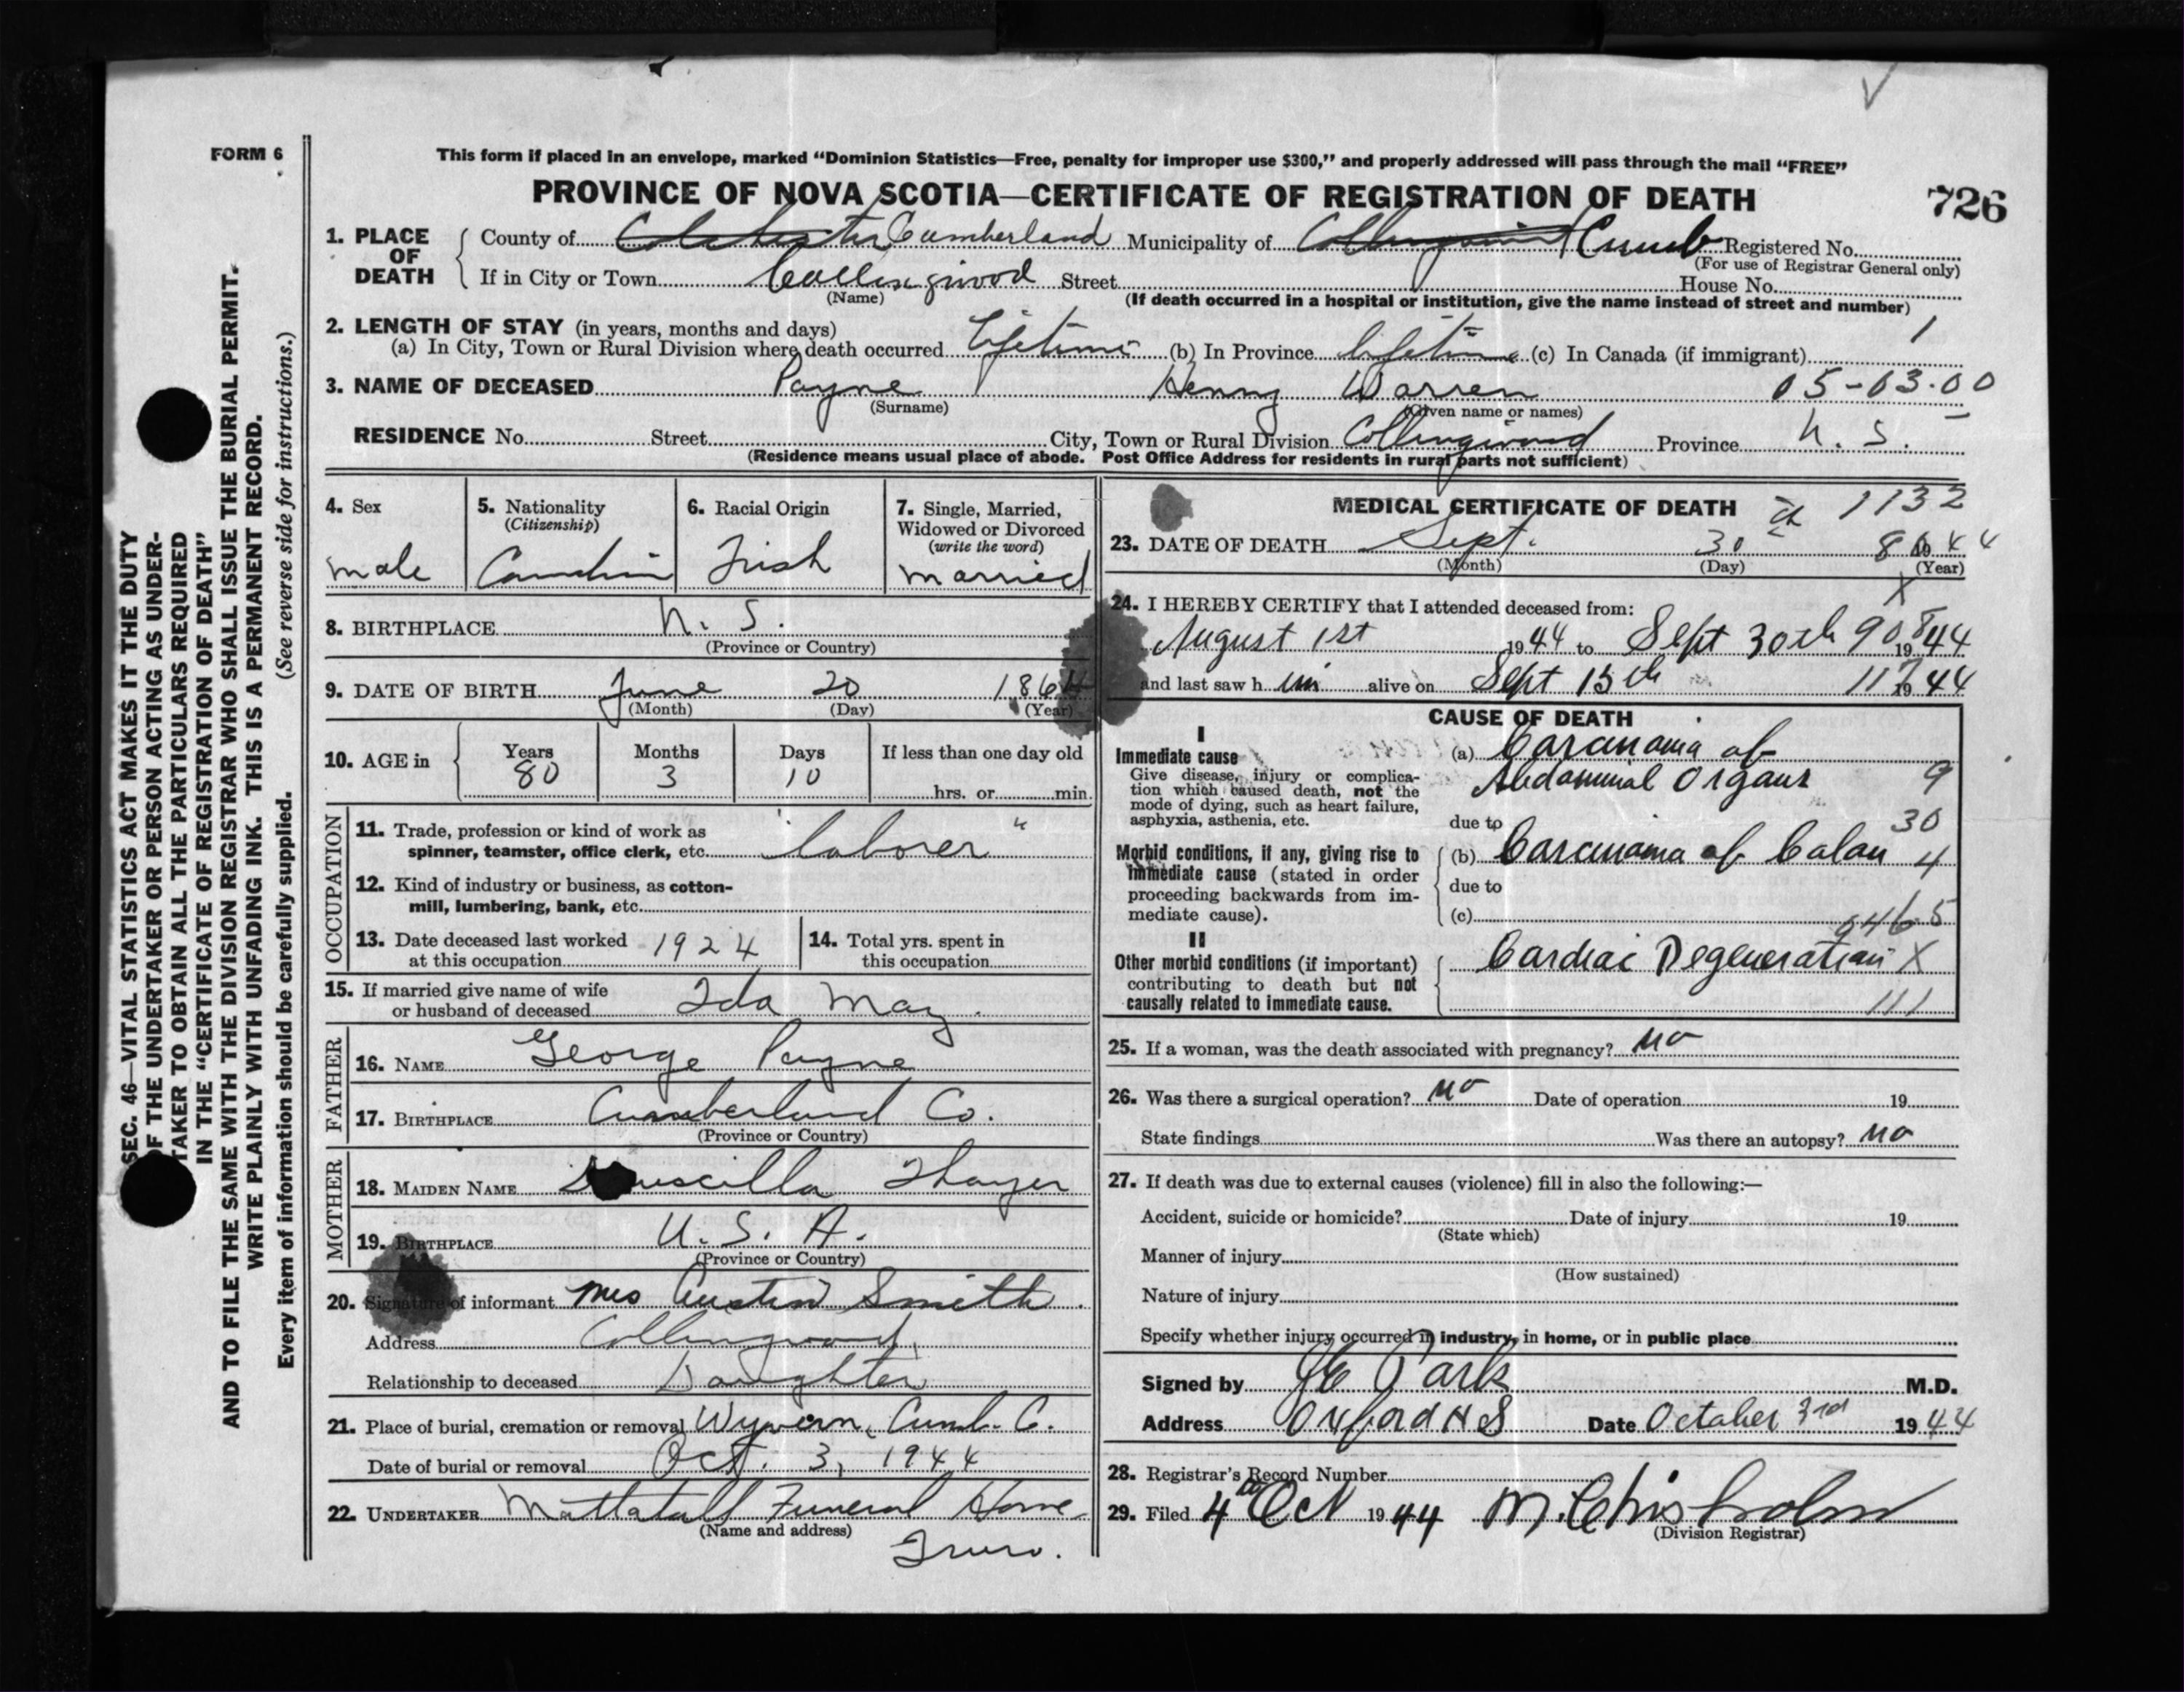 FORM 6
This form if placed in an envelope, marked "Dominion Statistics—Free, penalty for improper use $300," and properly addressed will pass through the mail "FREE"
PROVINCE OF NOVA SCOTIA—CERTIFICATE OF REGISTRATION OF DEATH
726
1. PLACE OF DEATH
County of Colchester Cumberland Municipality of Collingwood Cumb Registered No.
(For use of Registrar General only)
If in City or Town Collingwood Street House No.
(Name)
(If death occurred in a hospital or institution, give the name instead of street and number)
2. LENGTH OF STAY (in years, months and days)
(a) In City, Town or Rural Division where death occurred Lifetime (b) In Province Lifetime (c) In Canada (if immigrant) 1
3. NAME OF DECEASED Payne Henry Warren 05-03.00
(Surname) (Given name or names)
RESIDENCE No. Street City, Town or Rural Division Collingwood Province N. S.
(Residence means usual place of abode. Post Office Address for residents in rural parts not sufficient)
4. Sex
male
5. Nationality
(Citizenship)
Canadian
6. Racial Origin
Irish
7. Single, Married,
Widowed or Divorced
(write the word)
married
8. BIRTHPLACE N. S.
(Province or Country)
9. DATE OF BIRTH June 20 1864
(Month) (Day) (Year)
10. AGE in
Years Months Days If less than one day old
80 3 10
hrs. or min.
OCCUPATION
11. Trade, profession or kind of work as
spinner, teamster, office clerk, etc. "laborer"
12. Kind of industry or business, as cotton-
mill, lumbering, bank, etc.
13. Date deceased last worked
at this occupation 1924
14. Total yrs. spent in
this occupation
15. If married give name of wife
or husband of deceased Ida May.
FATHER
16. NAME George Payne
17. BIRTHPLACE Cumberland Co.
(Province or Country)
MOTHER
18. MAIDEN NAME Thayer
19. BIRTHPLACE U. S. A.
(Province or Country)
20. Signature of informant Mrs Austin Smith.
Address Collingwood,
Relationship to deceased Daughter
21. Place of burial, cremation or removal Wyvern, Cumb. C.
Date of burial or removal Oct. 3, 1944
22. UNDERTAKER Mattatall Funeral Home
(Name and address)
Truro.
MEDICAL CERTIFICATE OF DEATH 1132
23. DATE OF DEATH Sept. 30 1944
(Month) (Day) (Year)
X
24. I HEREBY CERTIFY that I attended deceased from:
August 1st 1944 to Sept 30th 908 1944
and last saw him alive on Sept 15th 117 1944
CAUSE OF DEATH
I
Immediate cause
Give disease, injury or complica-
tion which caused death, not the
mode of dying, such as heart failure,
asphyxia, asthenia, etc.
(a) Carcinoma of
Abdominal Organs 9
due to 30
Morbid conditions, if any, giving rise to
immediate cause (stated in order
proceeding backwards from im-
mediate cause).
(b) Carcinoma of Colon 4
due to
(c) 046.5
II
Other morbid conditions (if important)
contributing to death but not
causally related to immediate cause.
Cardiac Degeneration X
111
25. If a woman, was the death associated with pregnancy? no
26. Was there a surgical operation? no Date of operation 19
State findings Was there an autopsy? no
27. If death was due to external causes (violence) fill in also the following:—
Accident, suicide or homicide? Date of injury 19
(State which)
Manner of injury
(How sustained)
Nature of injury
Specify whether injury occurred in industry, in home, or in public place
Signed by Park M.D.
Address Oxford N S Date October 3rd 1944
28. Registrar's Record Number
29. Filed 4th Oct 1944 M. Chisholm
(Division Registrar)
SEC. 46—VITAL STATISTICS ACT MAKES IT THE DUTY
OF THE UNDERTAKER OR PERSON ACTING AS UNDER-
TAKER TO OBTAIN ALL THE PARTICULARS REQUIRED
IN THE "CERTIFICATE OF REGISTRATION OF DEATH"
AND TO FILE THE SAME WITH THE DIVISION REGISTRAR WHO SHALL ISSUE THE BURIAL PERMIT.
WRITE PLAINLY WITH UNFADING INK. THIS IS A PERMANENT RECORD.
Every item of information should be carefully supplied. (See reverse side for instructions.)